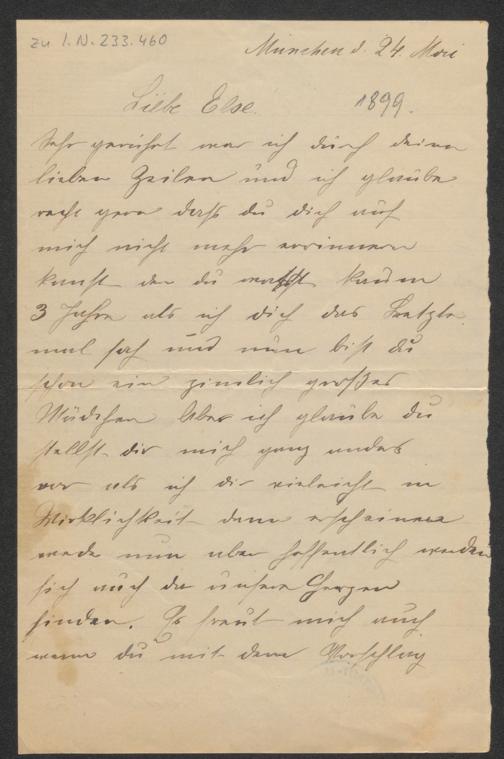 zu I.N. 233.460
München d. 24. Mai
Liebe Else. 1899.
Sehr gerührt war ich durch deine
lieben Zeilen und ich glaube
recht gern daß du dich auf
mich nicht mehr erinnern
kanst den du warst kaum
3 Jahre als ich dich das Letzte
mal sah und nun bist du
schon ein zimlich großes
Mädchen aber ich glaube du
stellst dir mich ganz anders
vor als ich dir vieleicht in
Wirklichkeit dann erscheinen
werde nun aber hoffentlich werden
sich auch da unsere Herzen
finden. Es freut mich auch
wenn du mit dem Vorschlag